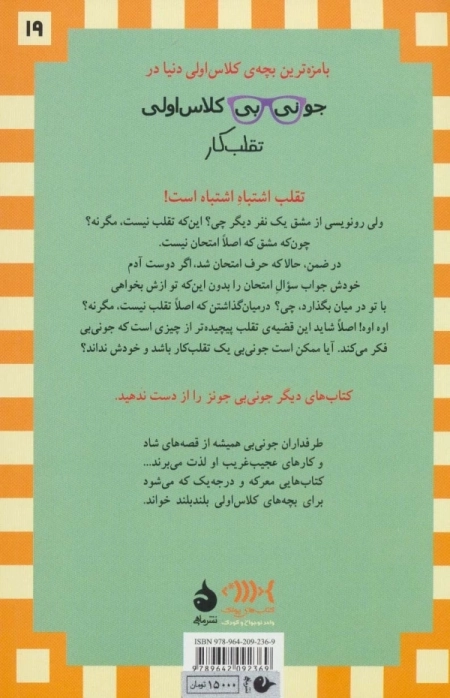 ۱۹
بامزه‌ترین بچه‌ی کلاس‌اولی دنیا در
جونی بی کلاس‌اولی
تقلب‌کار
تقلب اشتباهِ اشتباه است!
ولی رونویسی از مشق یک نفر دیگر چی؟ این‌که تقلب نیست، مگرنه؟
چون‌که مشق که اصلاً امتحان نیست.
در ضمن، حالا که حرف امتحان شد، اگر دوست آدم
خودش جواب سؤال امتحان را بدون این‌که تو ازش بخواهی
با تو در میان بگذارد، چی؟ درمیان‌گذاشتن که اصلاً تقلب نیست، مگرنه؟
اوه اوه! اصلاً شاید این قضیه‌ی تقلب پیچیده‌تر از چیزی است که جونی‌بی
فکر می‌کند. آیا ممکن است جونی‌بی یک تقلب‌کار باشد و خودش نداند؟
کتاب‌های دیگر جونی‌بی جونز را از دست ندهید.
طرفداران جونی‌بی همیشه از قصه‌های شاد
و کارهای عجیب‌غریب او لذت می‌برند...
کتاب‌هایی معرکه و درجه‌یک که می‌شود
برای بچه‌های کلاس‌اولی بلندبلند خواند.
نشر ماهی
ISBN 978-964-209-236-9
9789642092369
۱۵۰۰۰ تومان